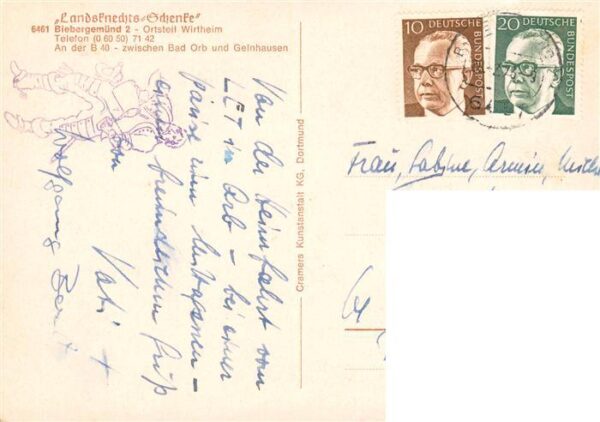 „Landsknechts-Schenke“
6461 Biebergemünd 2 - Ortsteil Wirtheim
Telefon (0 60 50) 71 42
An der B 40 - zwischen Bad Orb und Gelnhausen
Von der Heimfahrt vom
LET in Orb – bei einer
Pause zum
einen freundlichen Gruß
von Vati +
Wolfgang
Cramers Kunstanstalt KG, Dortmund
10 DEUTSCHE BUNDESPOST
20 DEUTSCHE BUNDESPOST
Frau, Sabine, Armin,